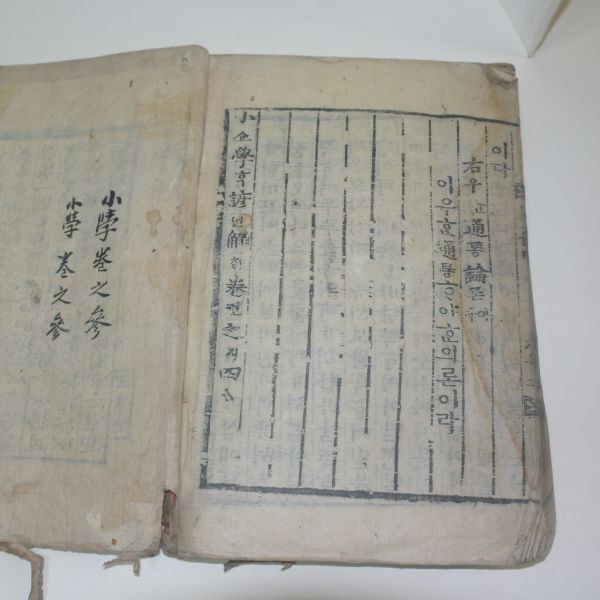 이다
右우 通통論론
이우흔通통ᄒᆞ야ᄒᆞᆫ의론이라
小쇼學ᄒᆞᆨ諺언解ᄒᆡ卷권之지四ᄉᆞ
小學卷之參
小學卷之參